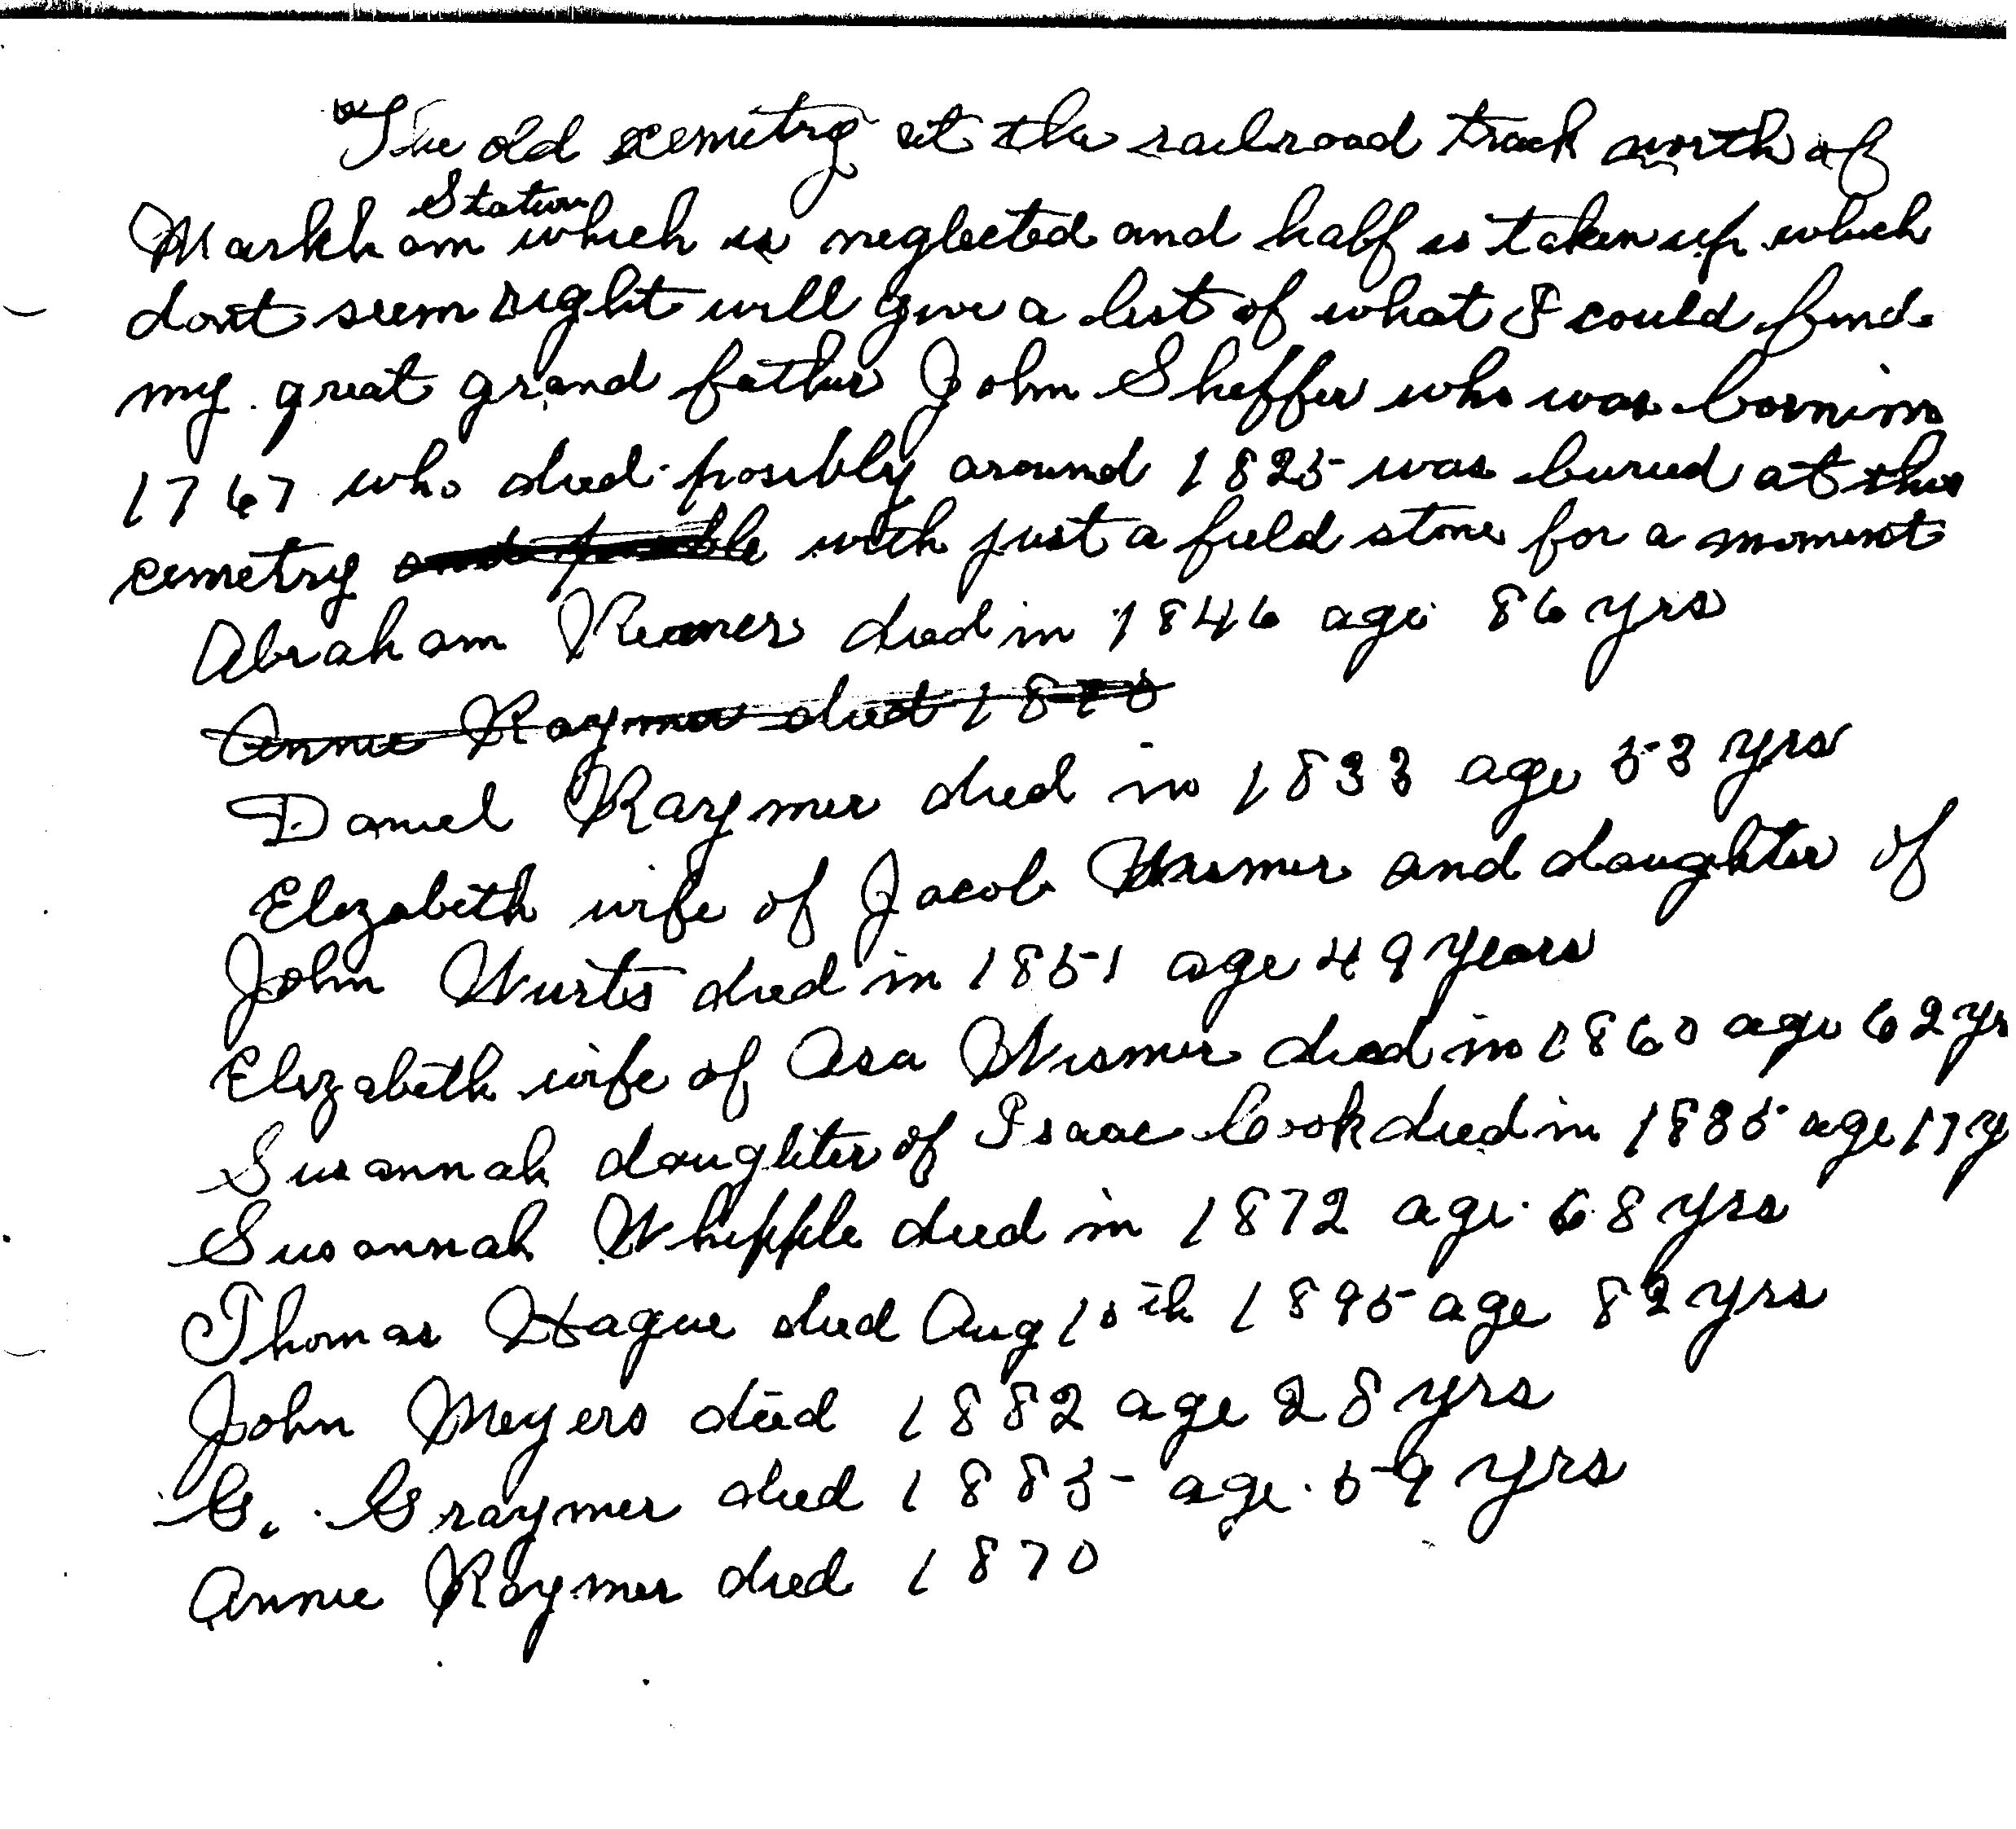 The old cemetry at the railroad track north of
Station
Markham which is neglected and half is taken up which
dont seem right will give a list of what I could find
my great grand father John Sheffer who was born in
1767 who died posibly around 1825 was buried at this
cemetry and posible with just a field stone for a moment
Abraham died in 1846 age 86 yrs
Annie Raymer died 1870
Daniel Raymer died in 1833 age 53 yrs
Elizabeth wife of Jacob Wismer and daughter of
John Wurts died in 1851 age 49 years
Elizabeth wife of Asa Wismer died in 1860 age 62 yr
Susannah daughter of Isaac Cook died in 1835 age 17 y
Susannah Whipple died in 1872 age 68 yrs
Thomas Hague died Aug 10th 1895 age 82 yrs
John Meyers died 1882 age 28 yrs
C. Graymer died 1885 age 59 yrs
Annie Raymer died 1870